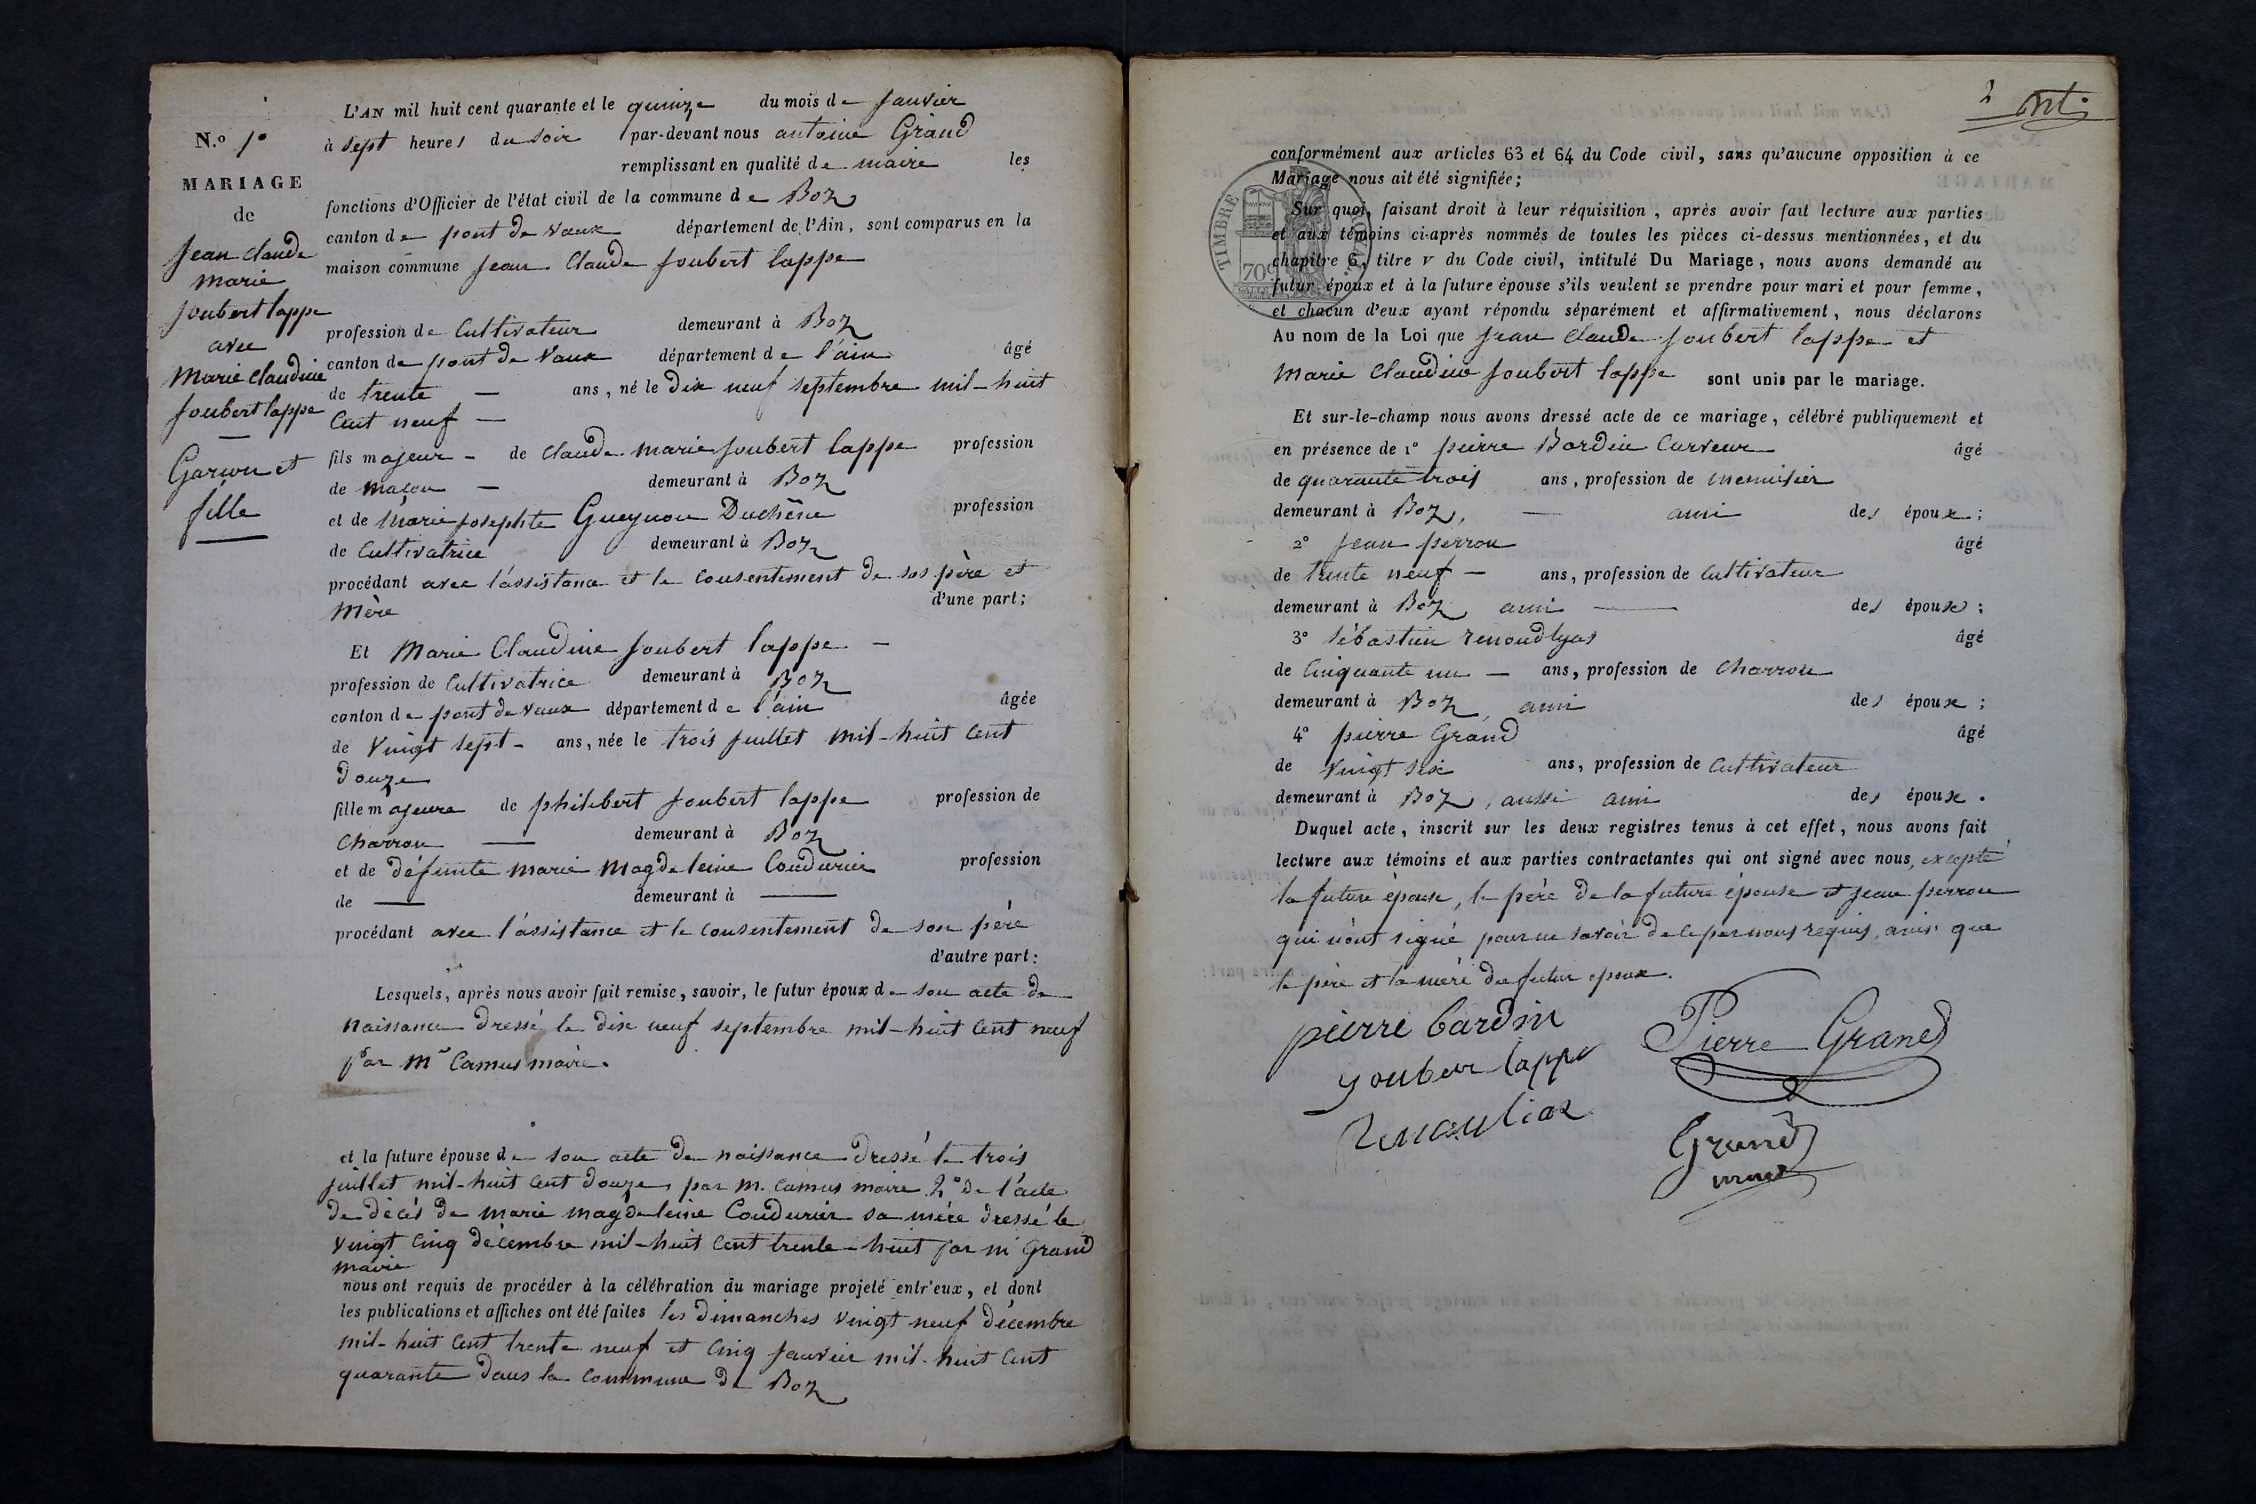 N.º 1º
MARIAGE
de
Jean Claude
Marie
Joubert lappe
avec
Marie Claudine
Joubert lappe
Garçon et
fille
L'AN mil huit cent quarante et le quinze du mois de Janvier
à sept heures du soir par-devant nous antoine Grand
remplissant en qualité de maire les
fonctions d'Officier de l'état civil de la commune de Boz
canton de pont de vaux département de l'Ain, sont comparus en la
maison commune Jean Claude Joubert lappe
profession de Cultivateur demeurant à Boz
canton de pont de Vaux département de l'ain âgé
de trente — ans, né le dix neuf septembre mil-huit
Cent neuf —
fils majeur - de Claude marie Joubert lappe profession
de maçon — demeurant à Boz
et de Marie josephte Gueynon Duchêne profession
de Cultivatrice demeurant à Boz
procédant avec l'assistance et le consentement de ses père et
Mère d'une part;
Et Marie Claudine Joubert lappe —
profession de Cultivatrice demeurant à Boz
canton de pont de vaux département de l'ain âgée
de Vingt sept - ans, née le trois juillet mil-huit Cent
Douze
fille majeure de philibert Joubert lappe profession de
Charron — demeurant à Boz
et de défunte marie Magdeleine Coudurier profession
de — demeurant à —
procédant avec l'assistance et le consentement de son père
d'autre part:
Lesquels, après nous avoir fait remise, savoir, le futur époux de son acte de
Naissance dressé le dix neuf septembre mil-huit Cent neuf
par Mr Camus maire.
et la future épouse de son acte de naissance dressé le trois
juillet mil-huit Cent douze, par M. Camus maire 2º de l'acte
de décès de marie magdeleine Coudurier sa mère dressé le
vingt Cinq décembre mil-huit Cent trente-huit par m Grand
maire
nous ont requis de procéder à la célébration du mariage projeté entr'eux, et dont
les publications et affiches ont été faites les dimanches Vingt neuf décembre
mil-huit Cent trente neuf et Cinq Janvier mil-huit Cent
quarante dans la Commune de Boz
2
conformément aux articles 63 et 64 du Code civil, sans qu'aucune opposition à ce
Mariage nous ait été signifiée;
TIMBRE ROYAL
70c
Sur quoi, faisant droit à leur réquisition, après avoir fait lecture aux parties
et aux témoins ci-après nommés de toutes les pièces ci-dessus mentionnées, et du
chapitre 6, titre v du Code civil, intitulé Du Mariage, nous avons demandé au
futur époux et à la future épouse s'ils veulent se prendre pour mari et pour femme,
et chacun d'eux ayant répondu séparément et affirmativement, nous déclarons
Au nom de la Loi que Jean Claude Joubert lappe et
Marie Claudine Joubert lappe sont unis par le mariage.
Et sur-le-champ nous avons dressé acte de ce mariage, célébré publiquement et
en présence de 1º pierre Bardin Curveur âgé
de quarante trois ans, profession de menuisier
demeurant à Boz, — ami des époux;
2º Jean perron âgé
de trente neuf — ans, profession de Cultivateur
demeurant à Boz ami — des époux;
3º Sébastien renoudlyat âgé
de Cinquante un — ans, profession de Charron
demeurant à Boz, ami des époux;
4º pierre Grand âgé
de vingt six ans, profession de Cultivateur
demeurant à Boz, aussi ami des époux.
Duquel acte, inscrit sur les deux registres tenus à cet effet, nous avons fait
lecture aux témoins et aux parties contractantes qui ont signé avec nous, excepté
la future épouse, le père de la future épouse et jean perron
qui n'ont signé pour ne savoir de ce par nous requis, ainsi que
le père et la mère du futur époux.
pierre bardin
Pierre Grand
Joubert lappe
Grand
maire